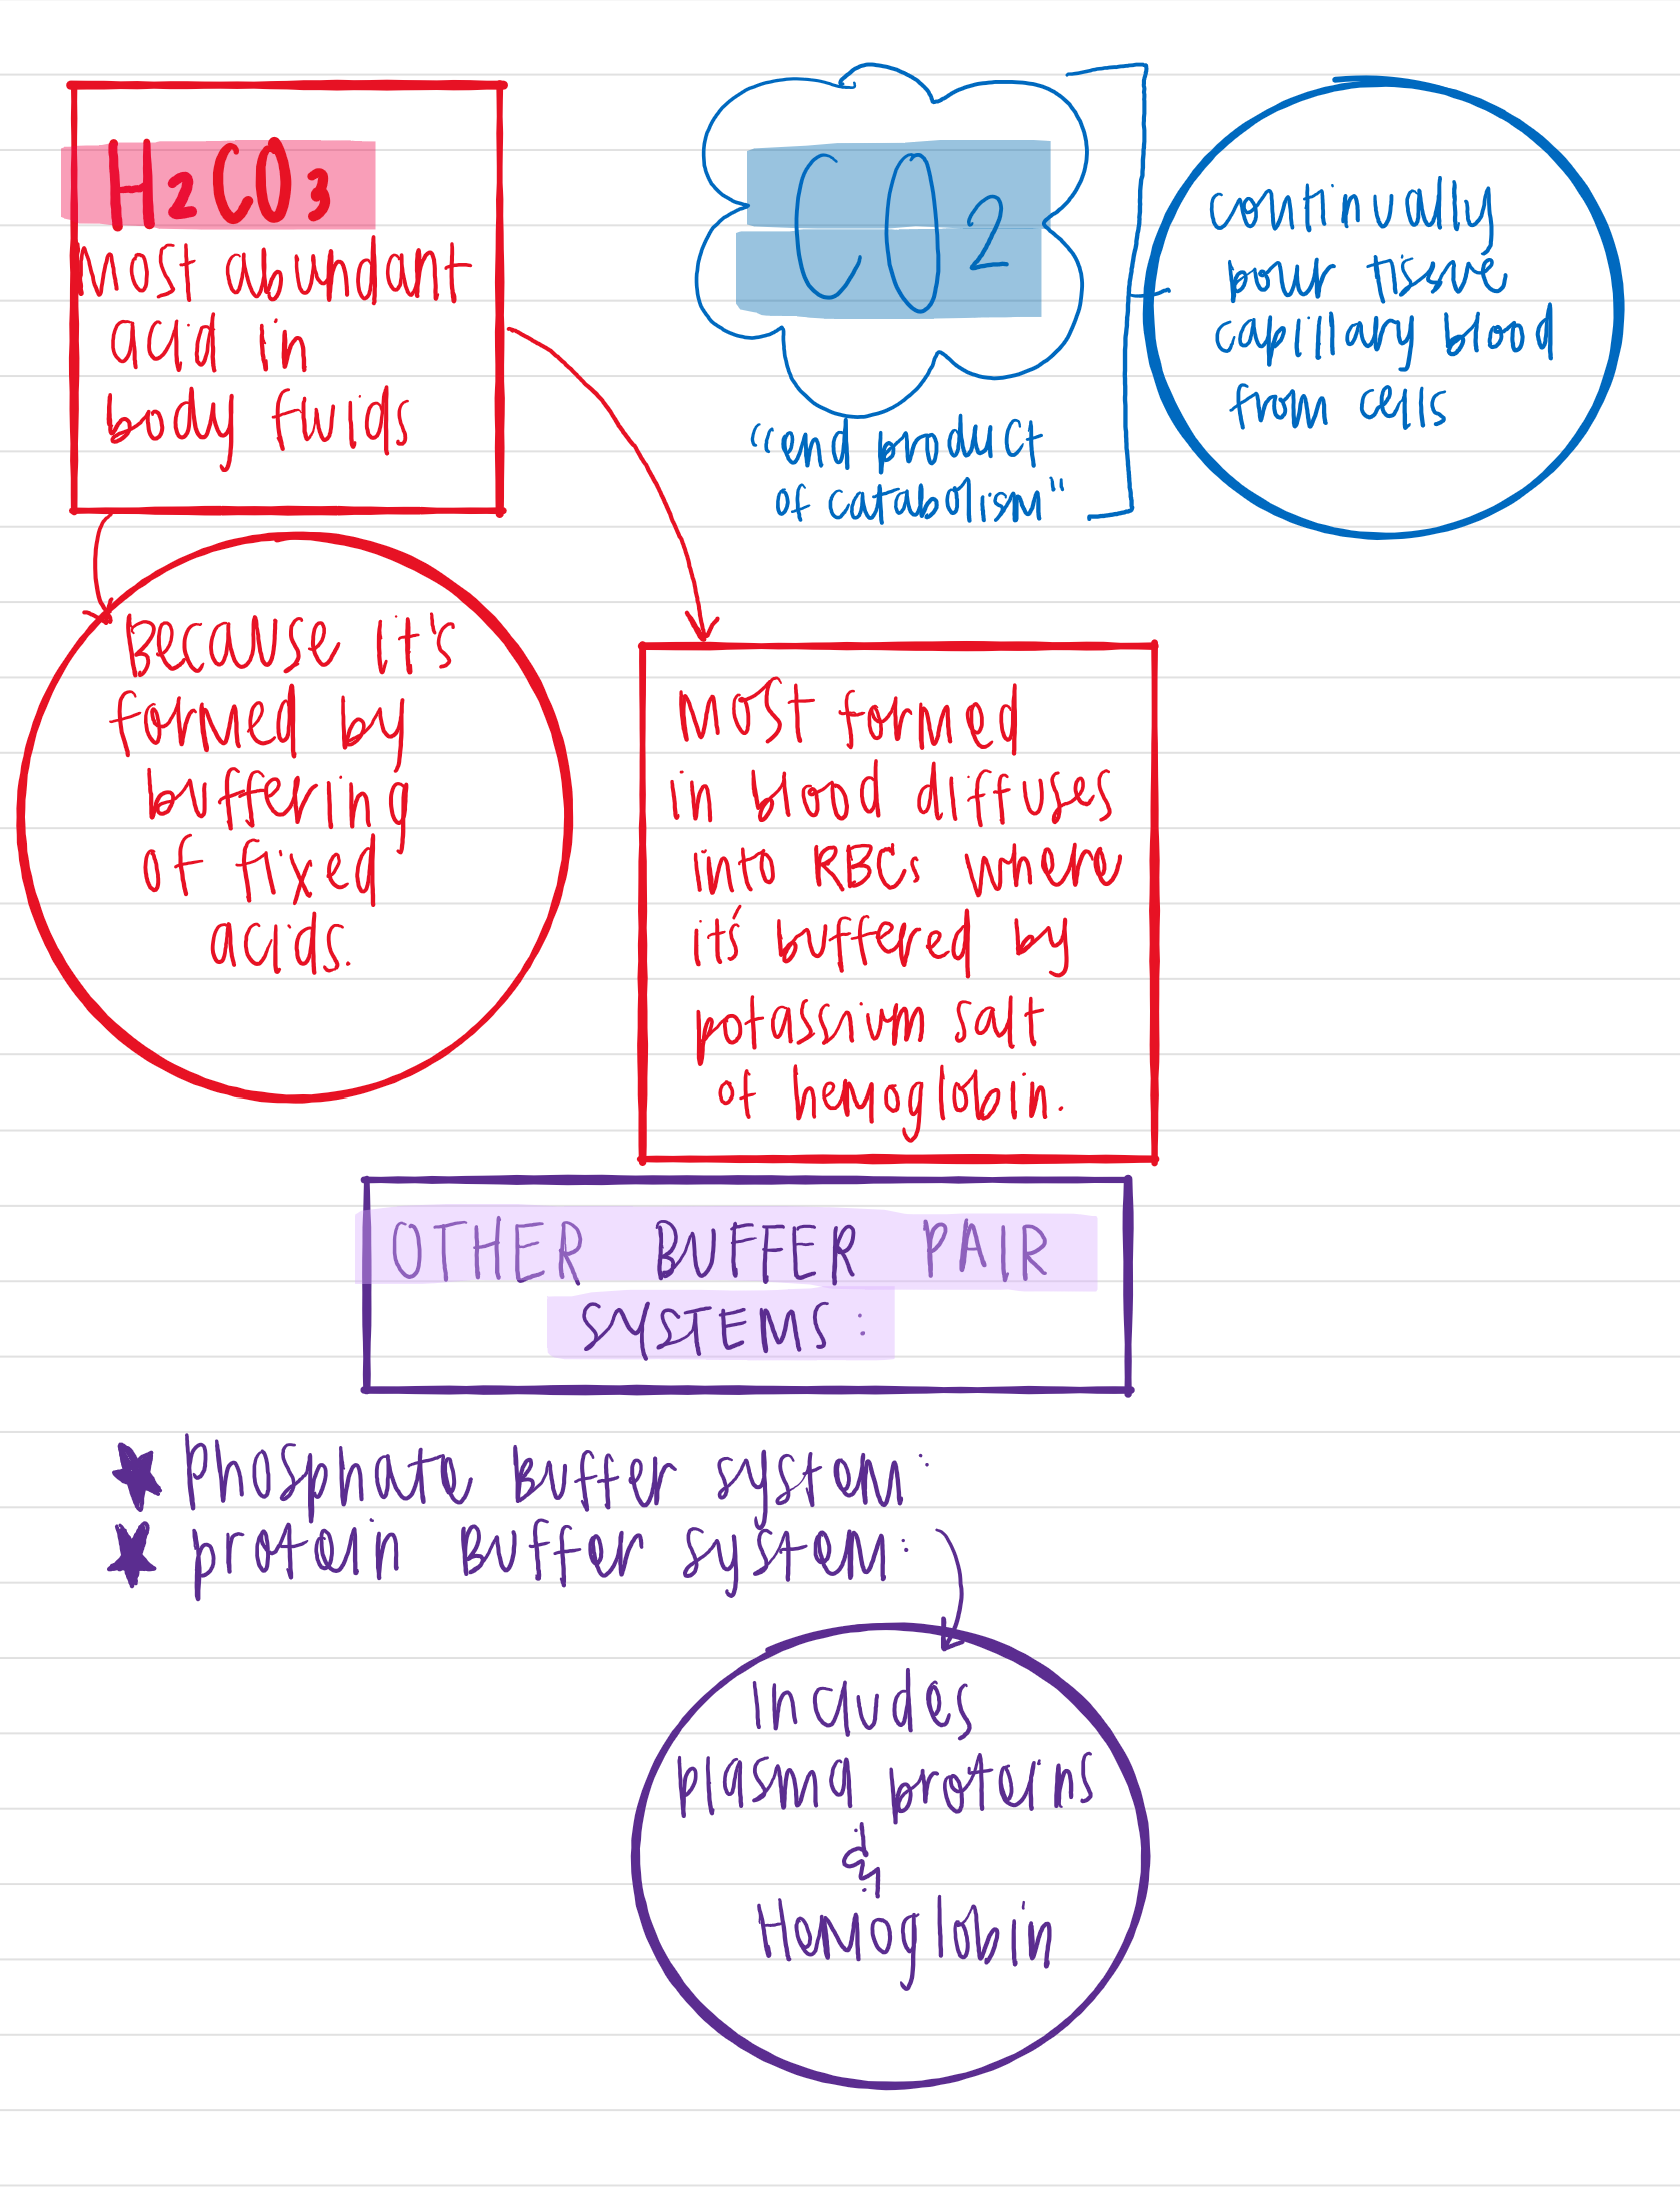 H2CO3
Most abundant
acid in
body fluids
CO2
"end product
of catabolism"
continually
pour tissue
capillary blood
from cells
Because it's
formed by
buffering
of fixed
acids.
Most formed
in blood diffuses
into RBCs where
it's buffered by
potassium salt
of hemoglobin.
OTHER BUFFER PAIR
SYSTEMS:
Phosphate Buffer system:
protein Buffer system:
Includes
plasma proteins
&
Hemoglobin